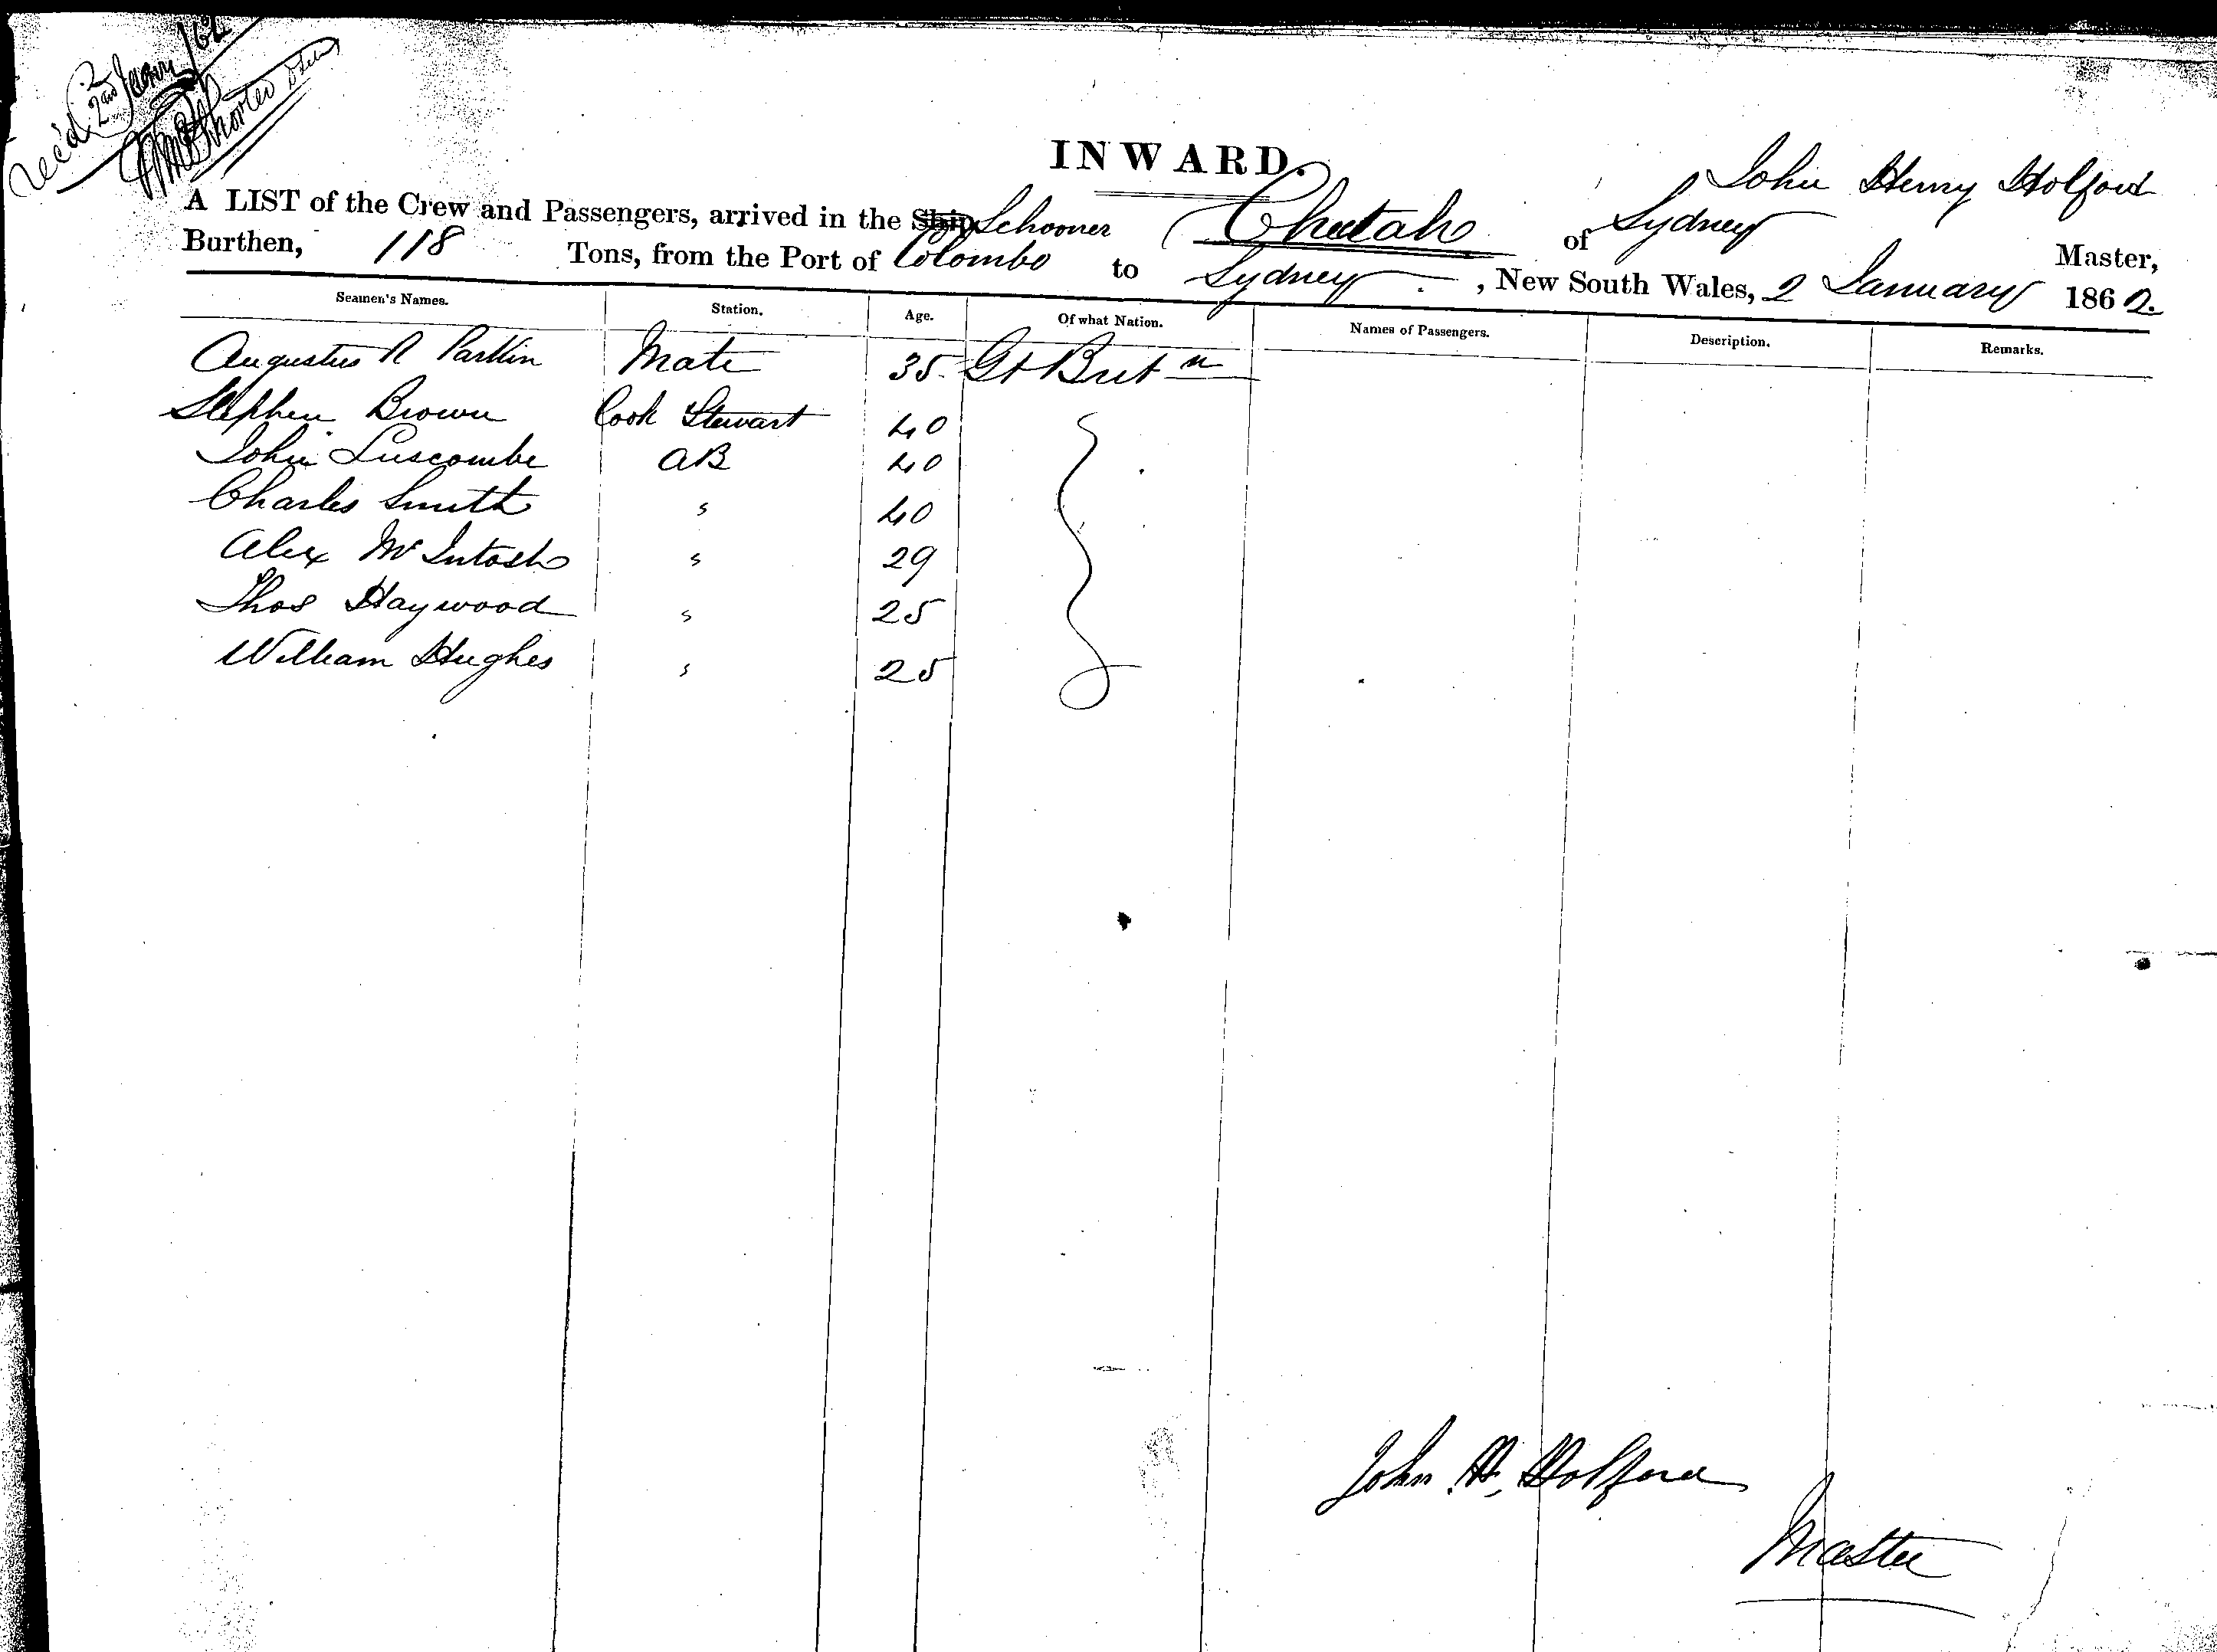 Rec'd 2nd Jany /62
INWARD.
A LIST of the Crew and Passengers, arrived in the Ship Schooner Cheetah of Sydney John Henry Holford Master,
Burthen, 118 Tons, from the Port of Colombo to Sydney, New South Wales, 2 January 1862.
Seamen's Names. Station. Age. Of what Nation. Names of Passengers. Description. Remarks.
Augustus R Parkin Mate 35 Gt Brit n
Stephen Brown Cook Stewart 40
John Luscombe AB 40
Charles Smith " 40
Alex McIntosh " 29
Thos Haywood " 25
William Hughes " 25
John H. Holford
Master